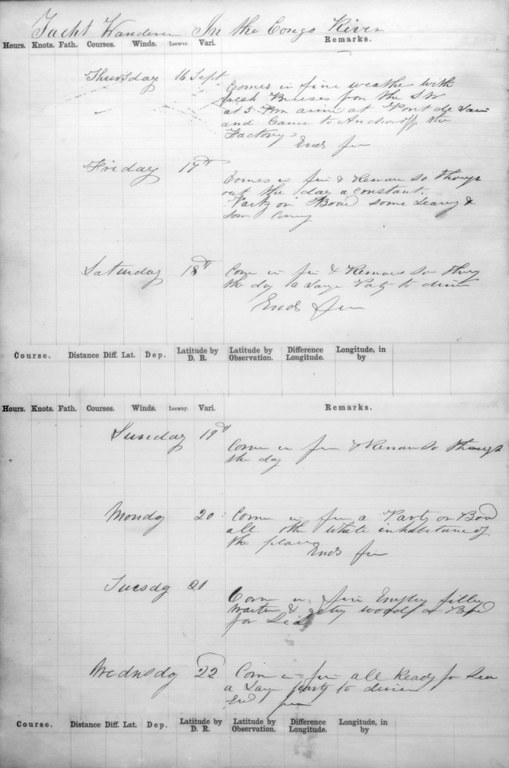 Yacht Wanderer In the Congo River
Hours. Knots. Fath. Courses. Winds. Leeway. Vari. Remarks.
Thursday 16 Sept
Comes in fine weather with
fresh Breises from the SW
at 3 Pm at Pont de
and Came to Anchor off the
Factory
Ends fin
Friday 17th
Comes in fin & Remans So Throug
out the day a constant
Party on Board some Leaving &
som
Saturday 18th
Com in fin & Remans So Throg
the day a Large Party to dinner
Ends fin
Course. Distance Diff. Lat. Dep. Latitude by D. R. Latitude by Observation. Difference Longitude. Longitude, in by
Hours. Knots. Fath. Courses. Winds. Leeway. Vari. Remarks.
Sunday 19th
Com in fin & Reman So Through
the day
Monday 20
Com in fin a Party on Bord
all the White inhabitance of
the place
Ends fin
Tuesdg 21
Com in fin Emptey filling
Warter & woods & Bord
for
Wednsdg 22
Com in fin all Ready for Sea
a Larg party to dinner
End fin
Course. Distance Diff. Lat. Dep. Latitude by D. R. Latitude by Observation. Difference Longitude. Longitude, in by